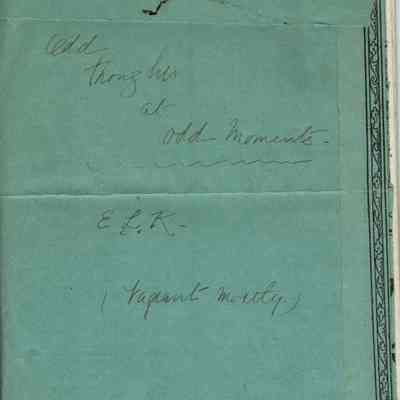 Odd
Thoughts
at
odd Moments -
E. L. K -
( Vagrant mostly. )